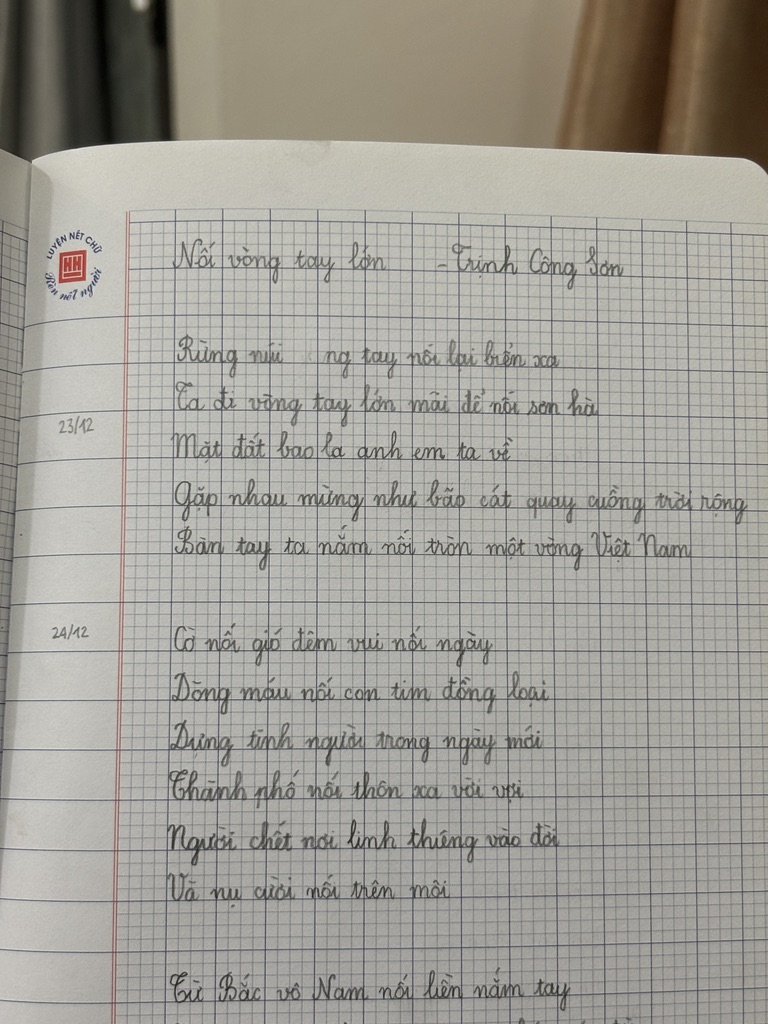 LUYỆN NÉT CHỮ
Rèn nết người
Nối vòng tay lớn - Trịnh Công Sơn
Rừng núi ng tay nối lại biển xa
Ta đi vòng tay lớn mãi để nối sơn hà
23/12
Mặt đất bao la anh em ta về
Gặp nhau mừng như bão cát quay cuồng trời rộng
Bàn tay ta nắm nối tròn một vòng Việt Nam
24/12
Cờ nối gió đêm vui nối ngày
Dòng máu nối con tim đồng loại
Dựng tình người trong ngày mới
Thành phố nối thôn xa vời vợi
Người chết nơi linh thiêng vào đời
Và nụ cười nối trên môi
Từ Bắc vô Nam nối liền nắm tay